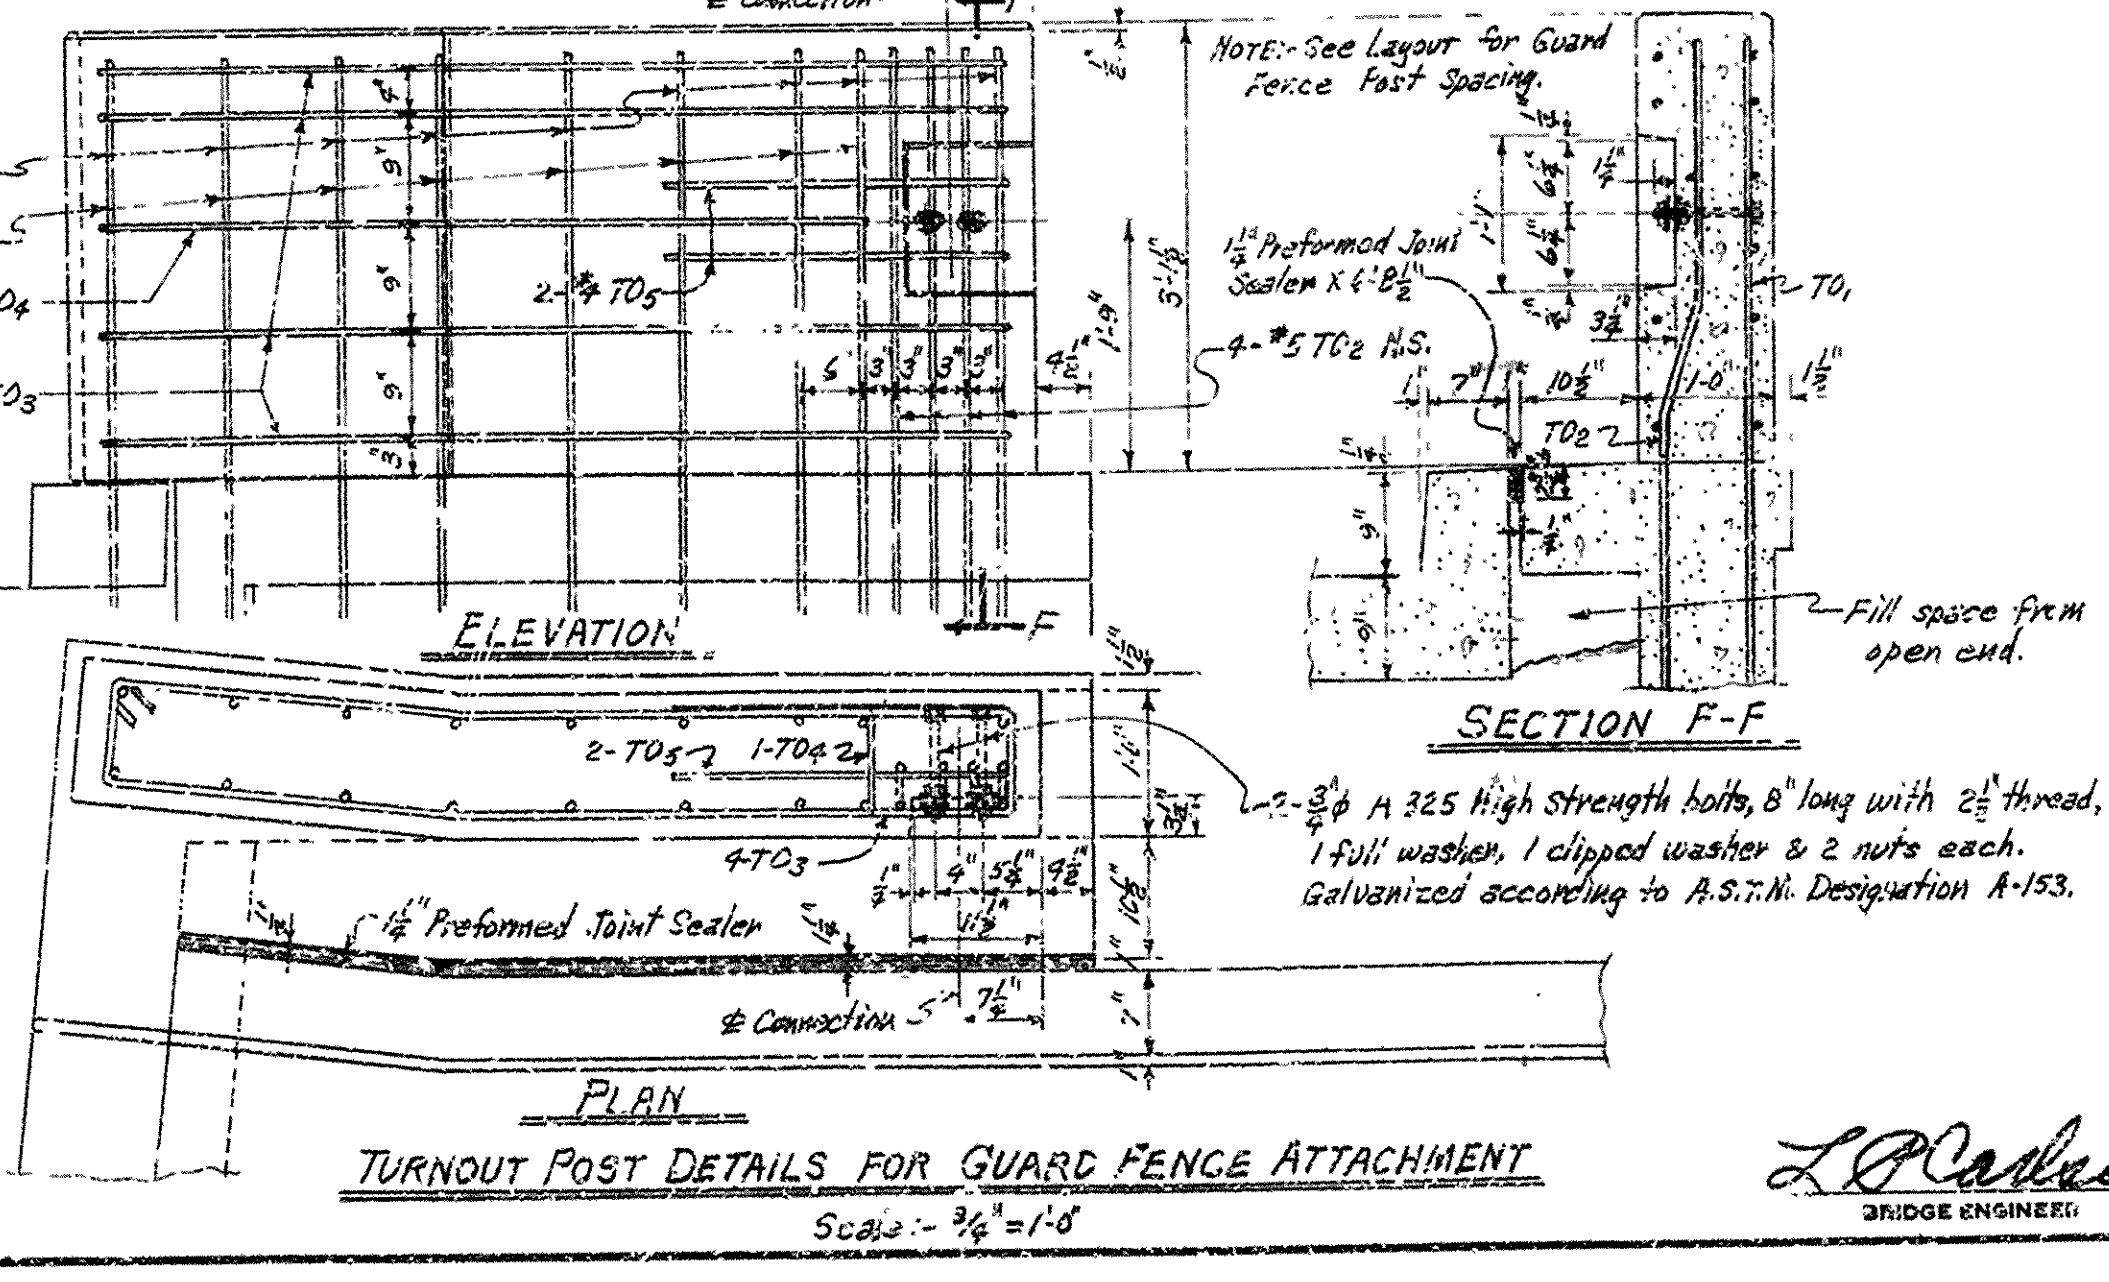 ℄ Connection
NOTE:- See Layout for Guard
Fence Post Spacing.
1/2"
4"
9"
9"
9"
3"
2-#4 TO5
TO3
6
3"
3"
3"
3"
4 1/2"
1'-9"
4-#5 TO2 N.S.
1 1/4" Preformed Joint
Sealer X
1 1/4"
6 1/4"
6 1/4"
1'-1"
1 1/4"
3 1/4"
TO1
1"
7"
10 1/2"
1'-0"
1 1/2"
TO2
1/4"
9"
9"
Fill space from
open end.
ELEVATION
F
SECTION F-F
1 1/2"
2-TO5
1-TO4
4-TO3
3 1/4"
2-3/4"φ A 325 High Strength bolts, 8" long with 2 1/2" thread,
1 full washer, 1 clipped washer & 2 nuts each.
Galvanized according to A.S.T.M. Designation A-153.
1/2"
4"
5 1/4"
4 1/2"
11 1/2"
10 1/2"
1 1/4" Preformed Joint Sealer
1 1/4"
℄ Connection
7 1/4"
1"
7"
1"
PLAN
TURNOUT POST DETAILS FOR GUARD FENCE ATTACHMENT
Scale:- 3/4" = 1'-0"
BRIDGE ENGINEER